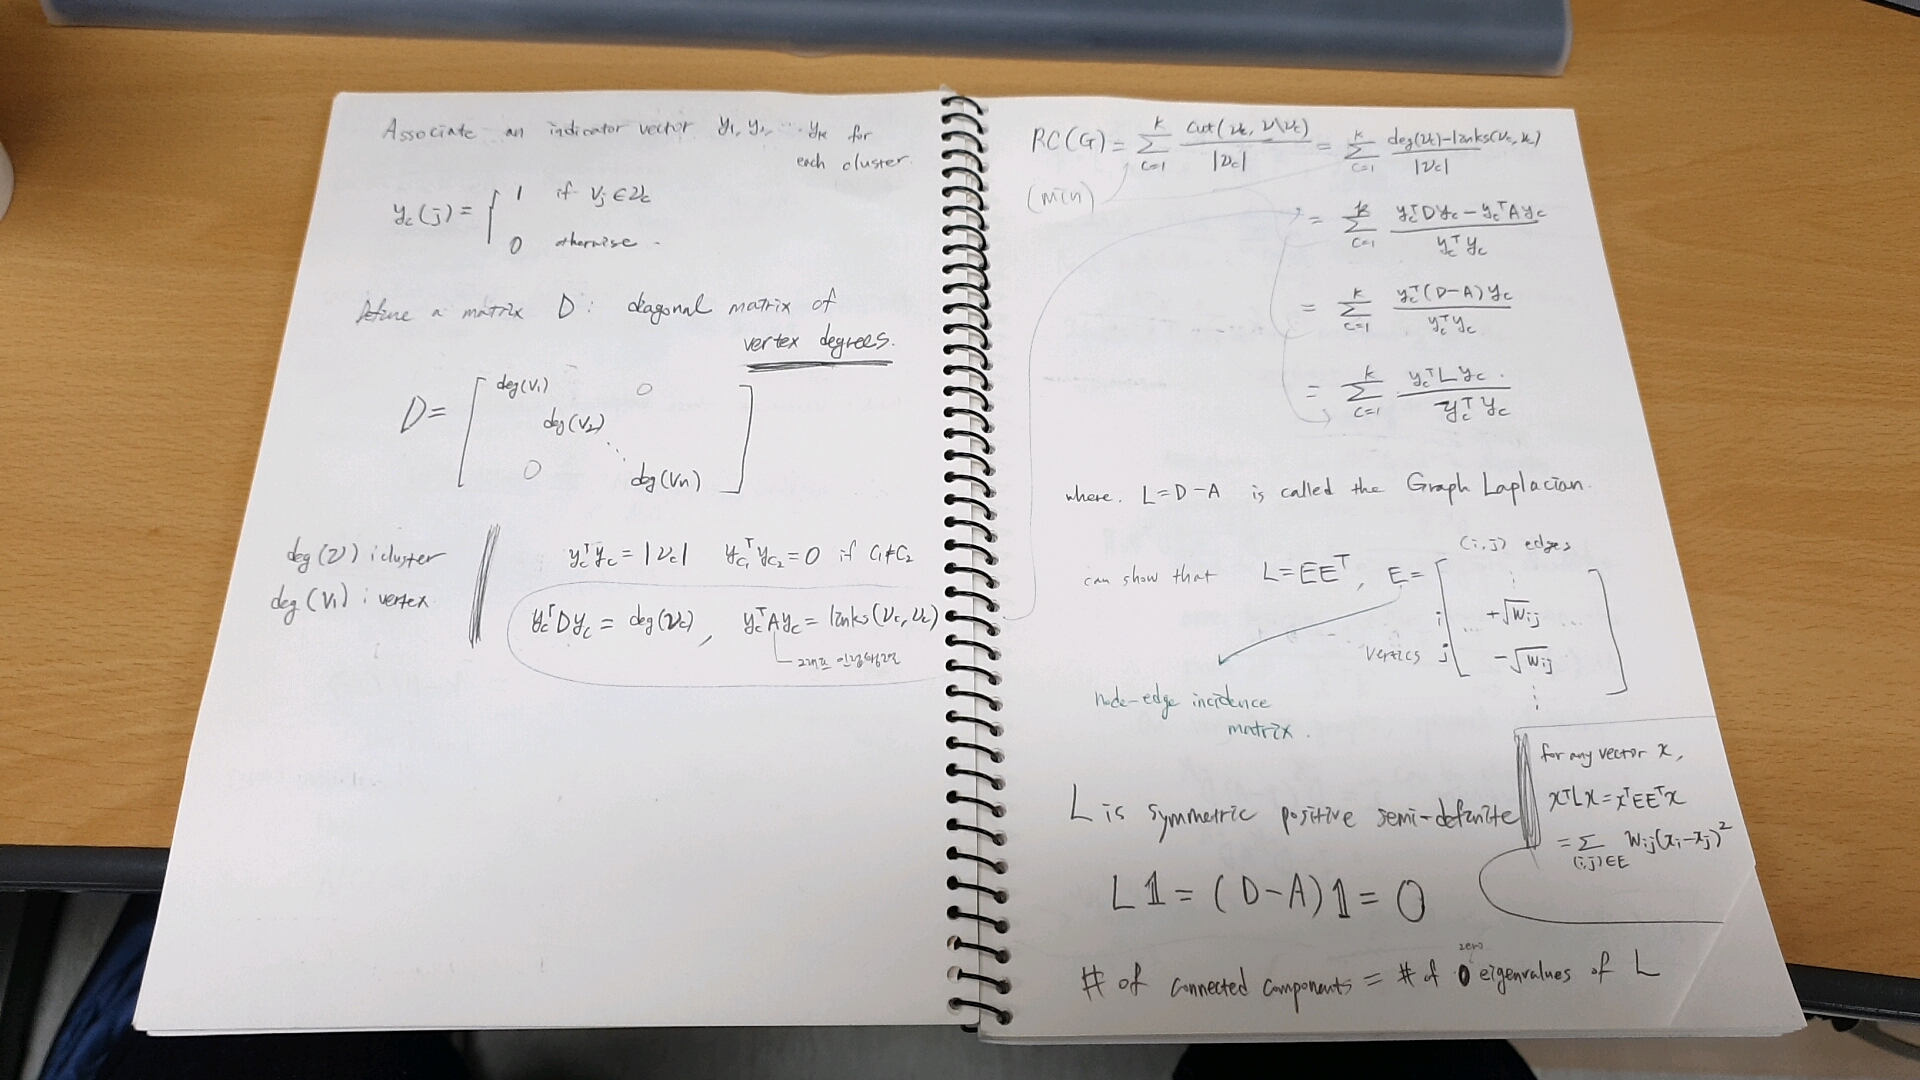 Associate an indicator vector y₁, y₂, ... yₖ for
each cluster.
y_c(j) = { 1 if v_j ∈ 𝒱_c
0 otherwise.
Define a matrix D : diagonal matrix of
vertex degrees.
D = [ deg(v₁) 0
deg(v₂)
⋱
0 deg(vₙ) ]
deg(𝒱) : cluster
deg(v₁) : vertex
y_cᵀy_c = |𝒱_c| y_c₁ᵀ y_c₂ = 0 if c₁≠c₂
y_cᵀDy_c = deg(𝒱_c), y_cᵀAy_c = links(𝒱_c, 𝒱_c)
그래프 인접행렬
RC(G) = Σ_{c=1}^{k} cut(𝒱_c, 𝒱\𝒱_c) / |𝒱_c| = Σ_{c=1}^{k} (deg(𝒱_c) - links(𝒱_c, 𝒱_c)) / |𝒱_c|
(min)
= Σ_{c=1}^{k} (y_cᵀDy_c - y_cᵀAy_c) / y_cᵀy_c
= Σ_{c=1}^{k} y_cᵀ(D-A)y_c / y_cᵀy_c
= Σ_{c=1}^{k} y_cᵀLy_c / y_cᵀy_c
where. L=D-A is called the Graph Laplacian.
(i,j) edges
can show that L=EEᵀ, E= [ ⋮
i ... +√w_ij
vertics j -√w_ij
⋮ ]
node-edge incidence
matrix.
for any vector x,
xᵀLx = xᵀEEᵀx
= Σ_{(i,j)∈E} w_ij(x_i - x_j)²
L is symmetric positive semi-definite
L𝟙 = (D-A)𝟙 = 0
zero
# of connected components = # of 0 eigenvalues of L